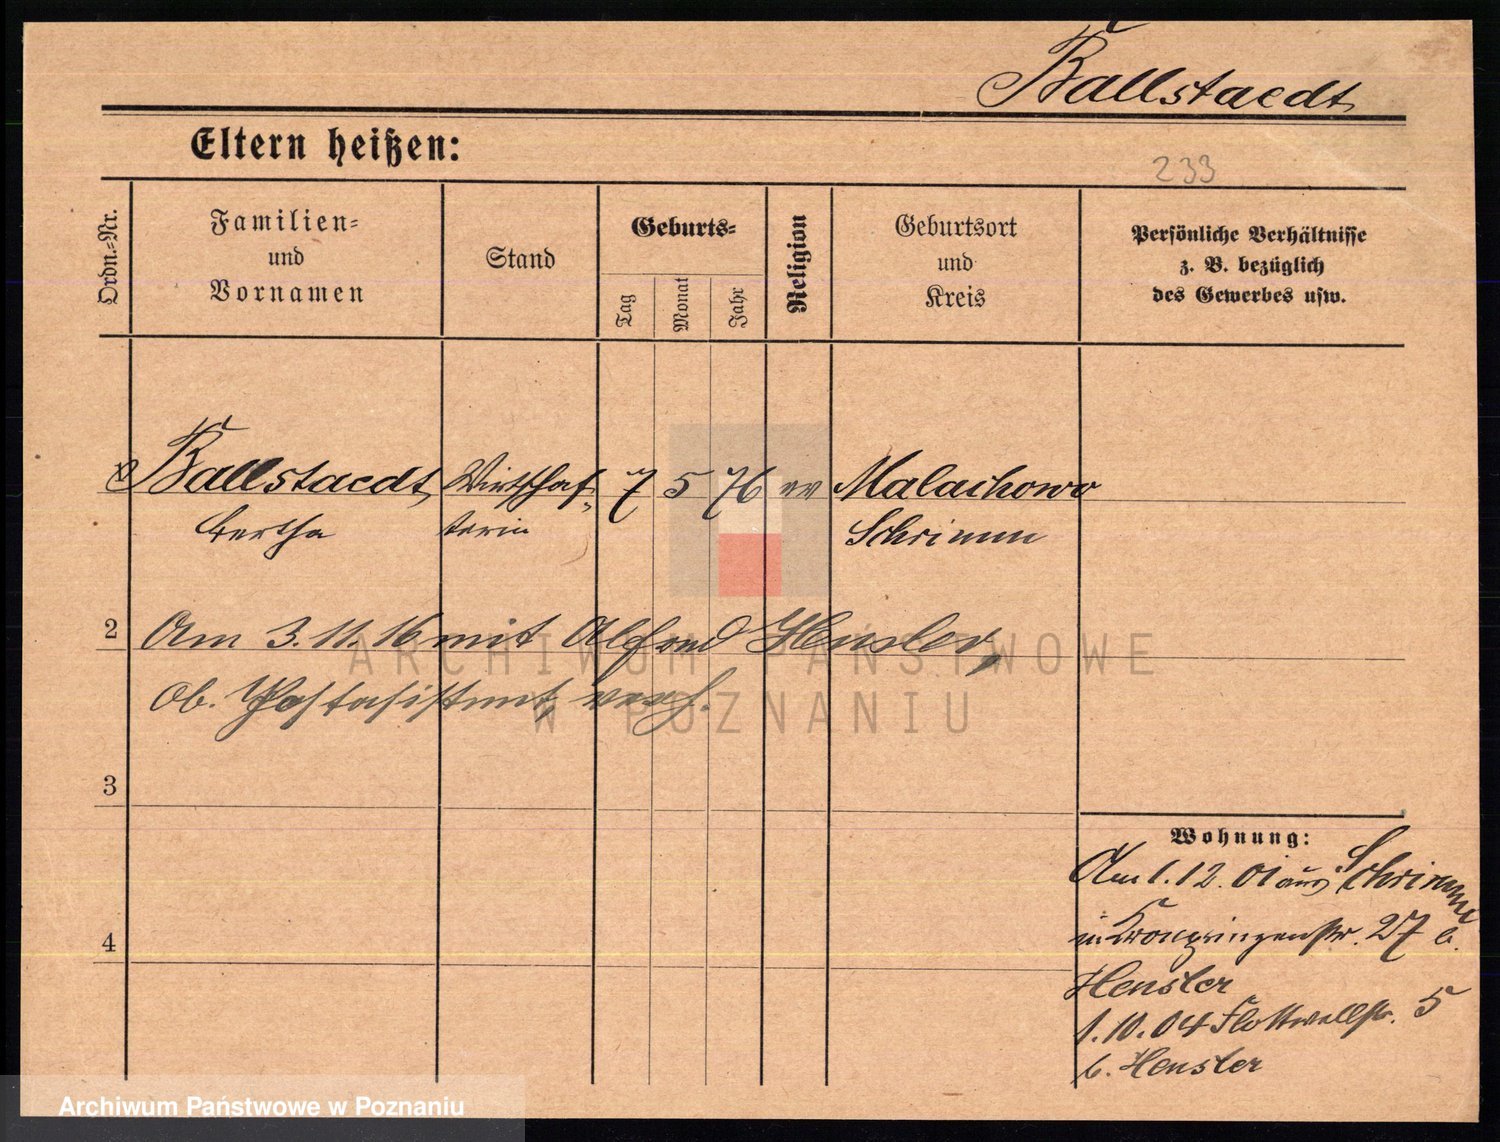 Ballstaedt
Eltern heißen:
233
Ordn.=Nr.
Familien=
und
Vornamen
Stand
Geburts=
Tag
Monat
Jahr
Religion
Geburtsort
und
Kreis
Persönliche Verhältnisse
z. B. bezüglich
des Gewerbes usw.
Ballstaedt Wirtschaf= 7 5 76 ev Malachowo
Bertha terin Schrimm
2 Am 3.11.16 mit Alfred Hensler,
Ob. Postassistent, verh.
3
4
Wohnung:
Am 1.12.01 aus Schrimm
in Kronprinzenstr. 27 b.
Hensler
1.10.04 Flottwellstr. 5
b. Hensler
ARCHIWUM PAŃSTWOWE
W POZNANIU
Archiwum Państwowe w Poznaniu